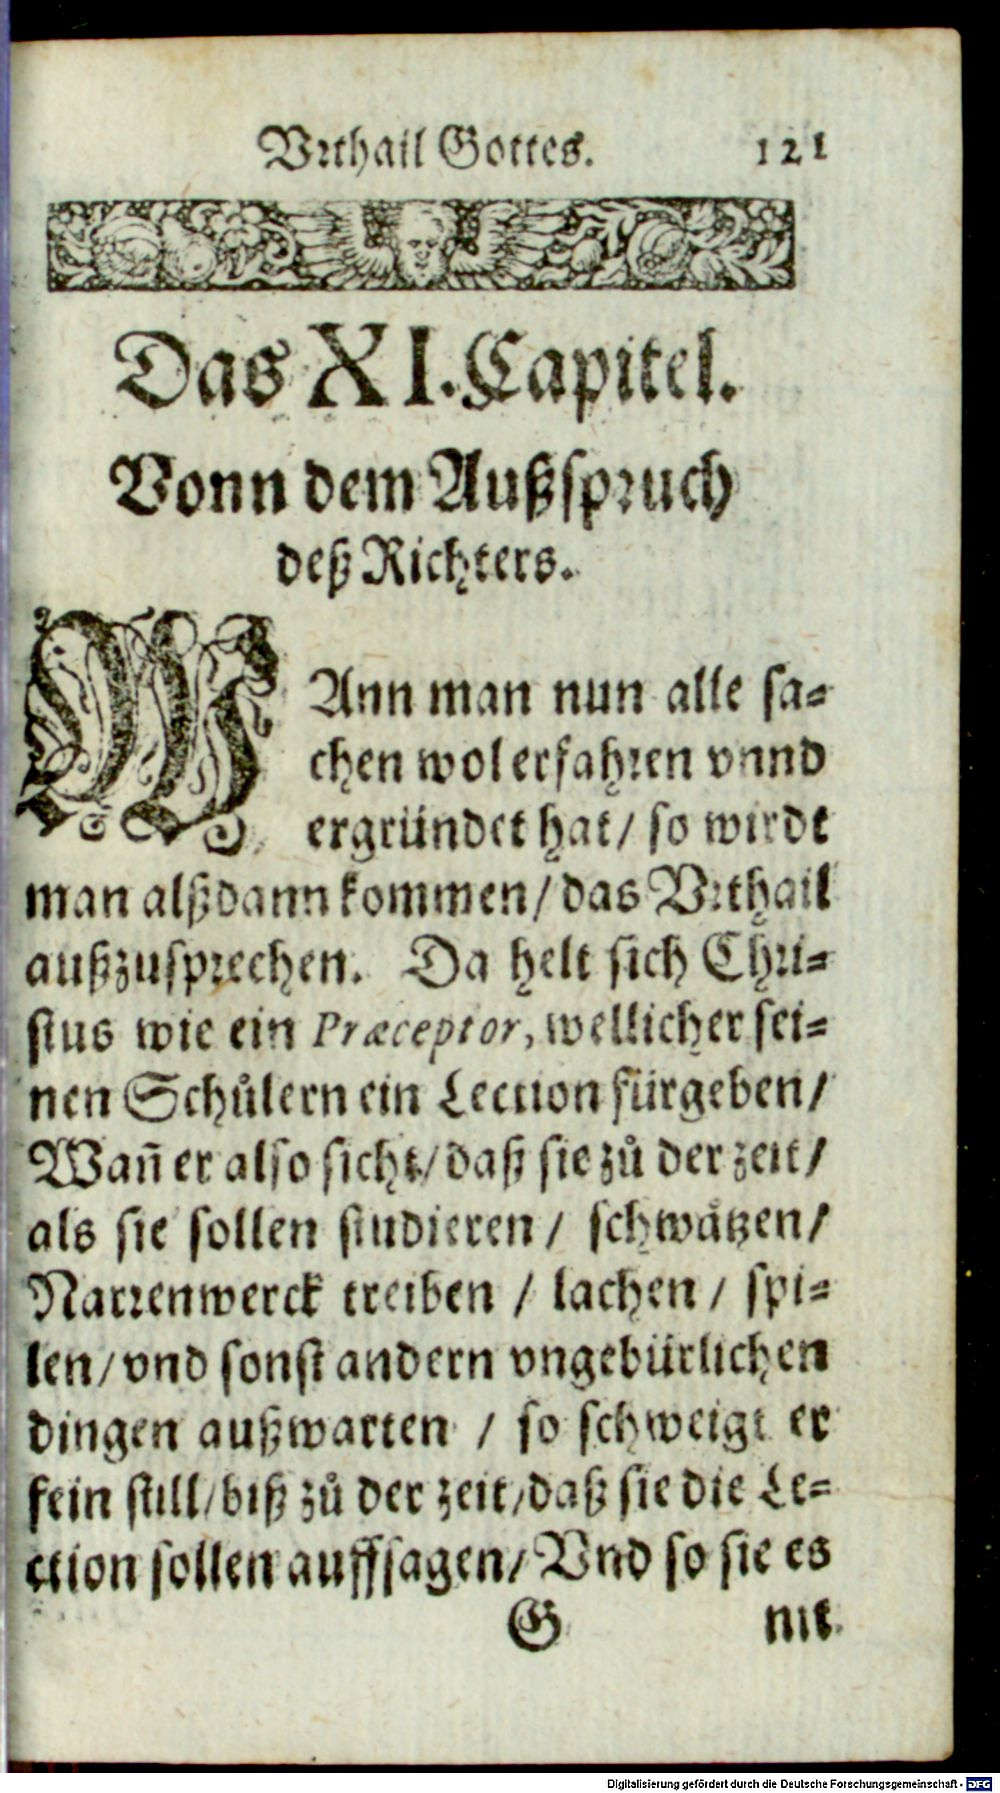 Vrthail Gottes. 121
Das XI. Capitel.
Vonn dem Außspruch
deß Richters.
WAnn man nun alle sa-
chen wol erfahren vnnd
ergründet hat/ so wirdt
man alßdann kommen/ das Vrthail
außzusprechen. Da helt sich Chri-
stus wie ein Præceptor, wellicher sei-
nen Schuͤlern ein Lection fürgeben/
Wañ er also sicht/ daß sie zů der zeit/
als sie sollen studieren/ schwaͤtzen/
Narrenwerck treiben / lachen / spi-
len/ vnd sonst andern vngebürlichen
dingen außwarten / so schweigt er
fein still/ biß zů der zeit/ daß sie die Le-
ction sollen auffsagen/ Vnd so sie es
G nit
Digitalisierung gefördert durch die Deutsche Forschungsgemeinschaft - DFG